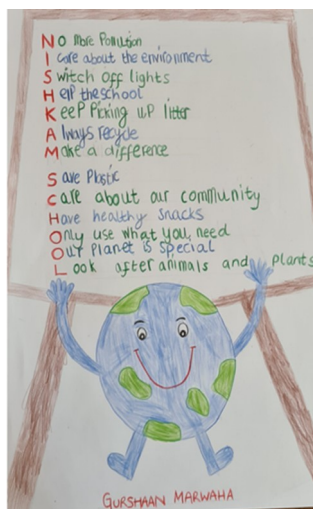 No More Pollution
I care about the environment
Switch off lights
Help the school
Keep Picking up litter
Always recycle
Make a difference
Save Plastic
Care about our community
Have healthy snacks
Only use what you, need
Our Planet is special
Look after animals and plants
GURSHAAN MARWAHA